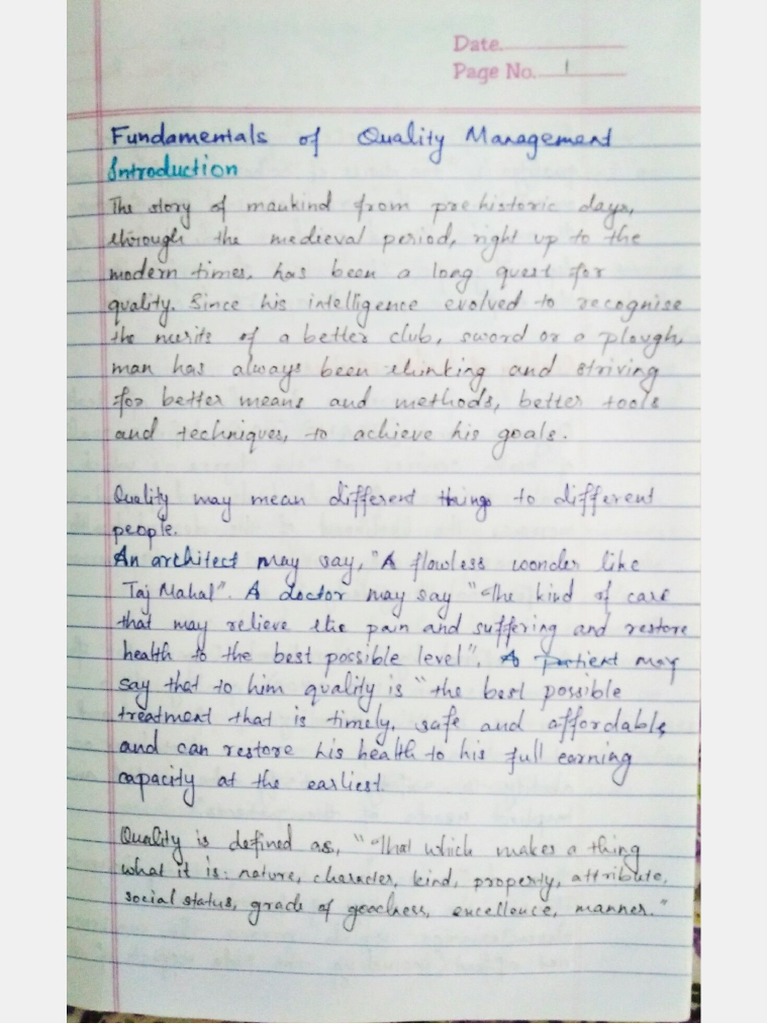 Date
Page No. 1
Fundamentals of Quality Management
Introduction
The story of mankind from prehistoric days,
through the medieval period, right up to the
modern times, has been a long quest for
quality. Since his intelligence evolved to recognise
the merits of a better club, sword or a plough,
man has always been thinking and striving
for better means and methods, better tools
and techniques, to achieve his goals.
Quality may mean different things to different
people.
An architect may say, "A flawless wonder like
Taj Mahal". A doctor may say "The kind of care
that may relieve the pain and suffering and restore
health to the best possible level". A patient may
say that to him quality is "the best possible
treatment that is timely, safe and affordable,
and can restore his health to his full earning
capacity at the earliest.
Quality is defined as, "That which makes a thing
what it is: nature, character, kind, property, attribute,
social status, grade of goodness, excellence, manner."